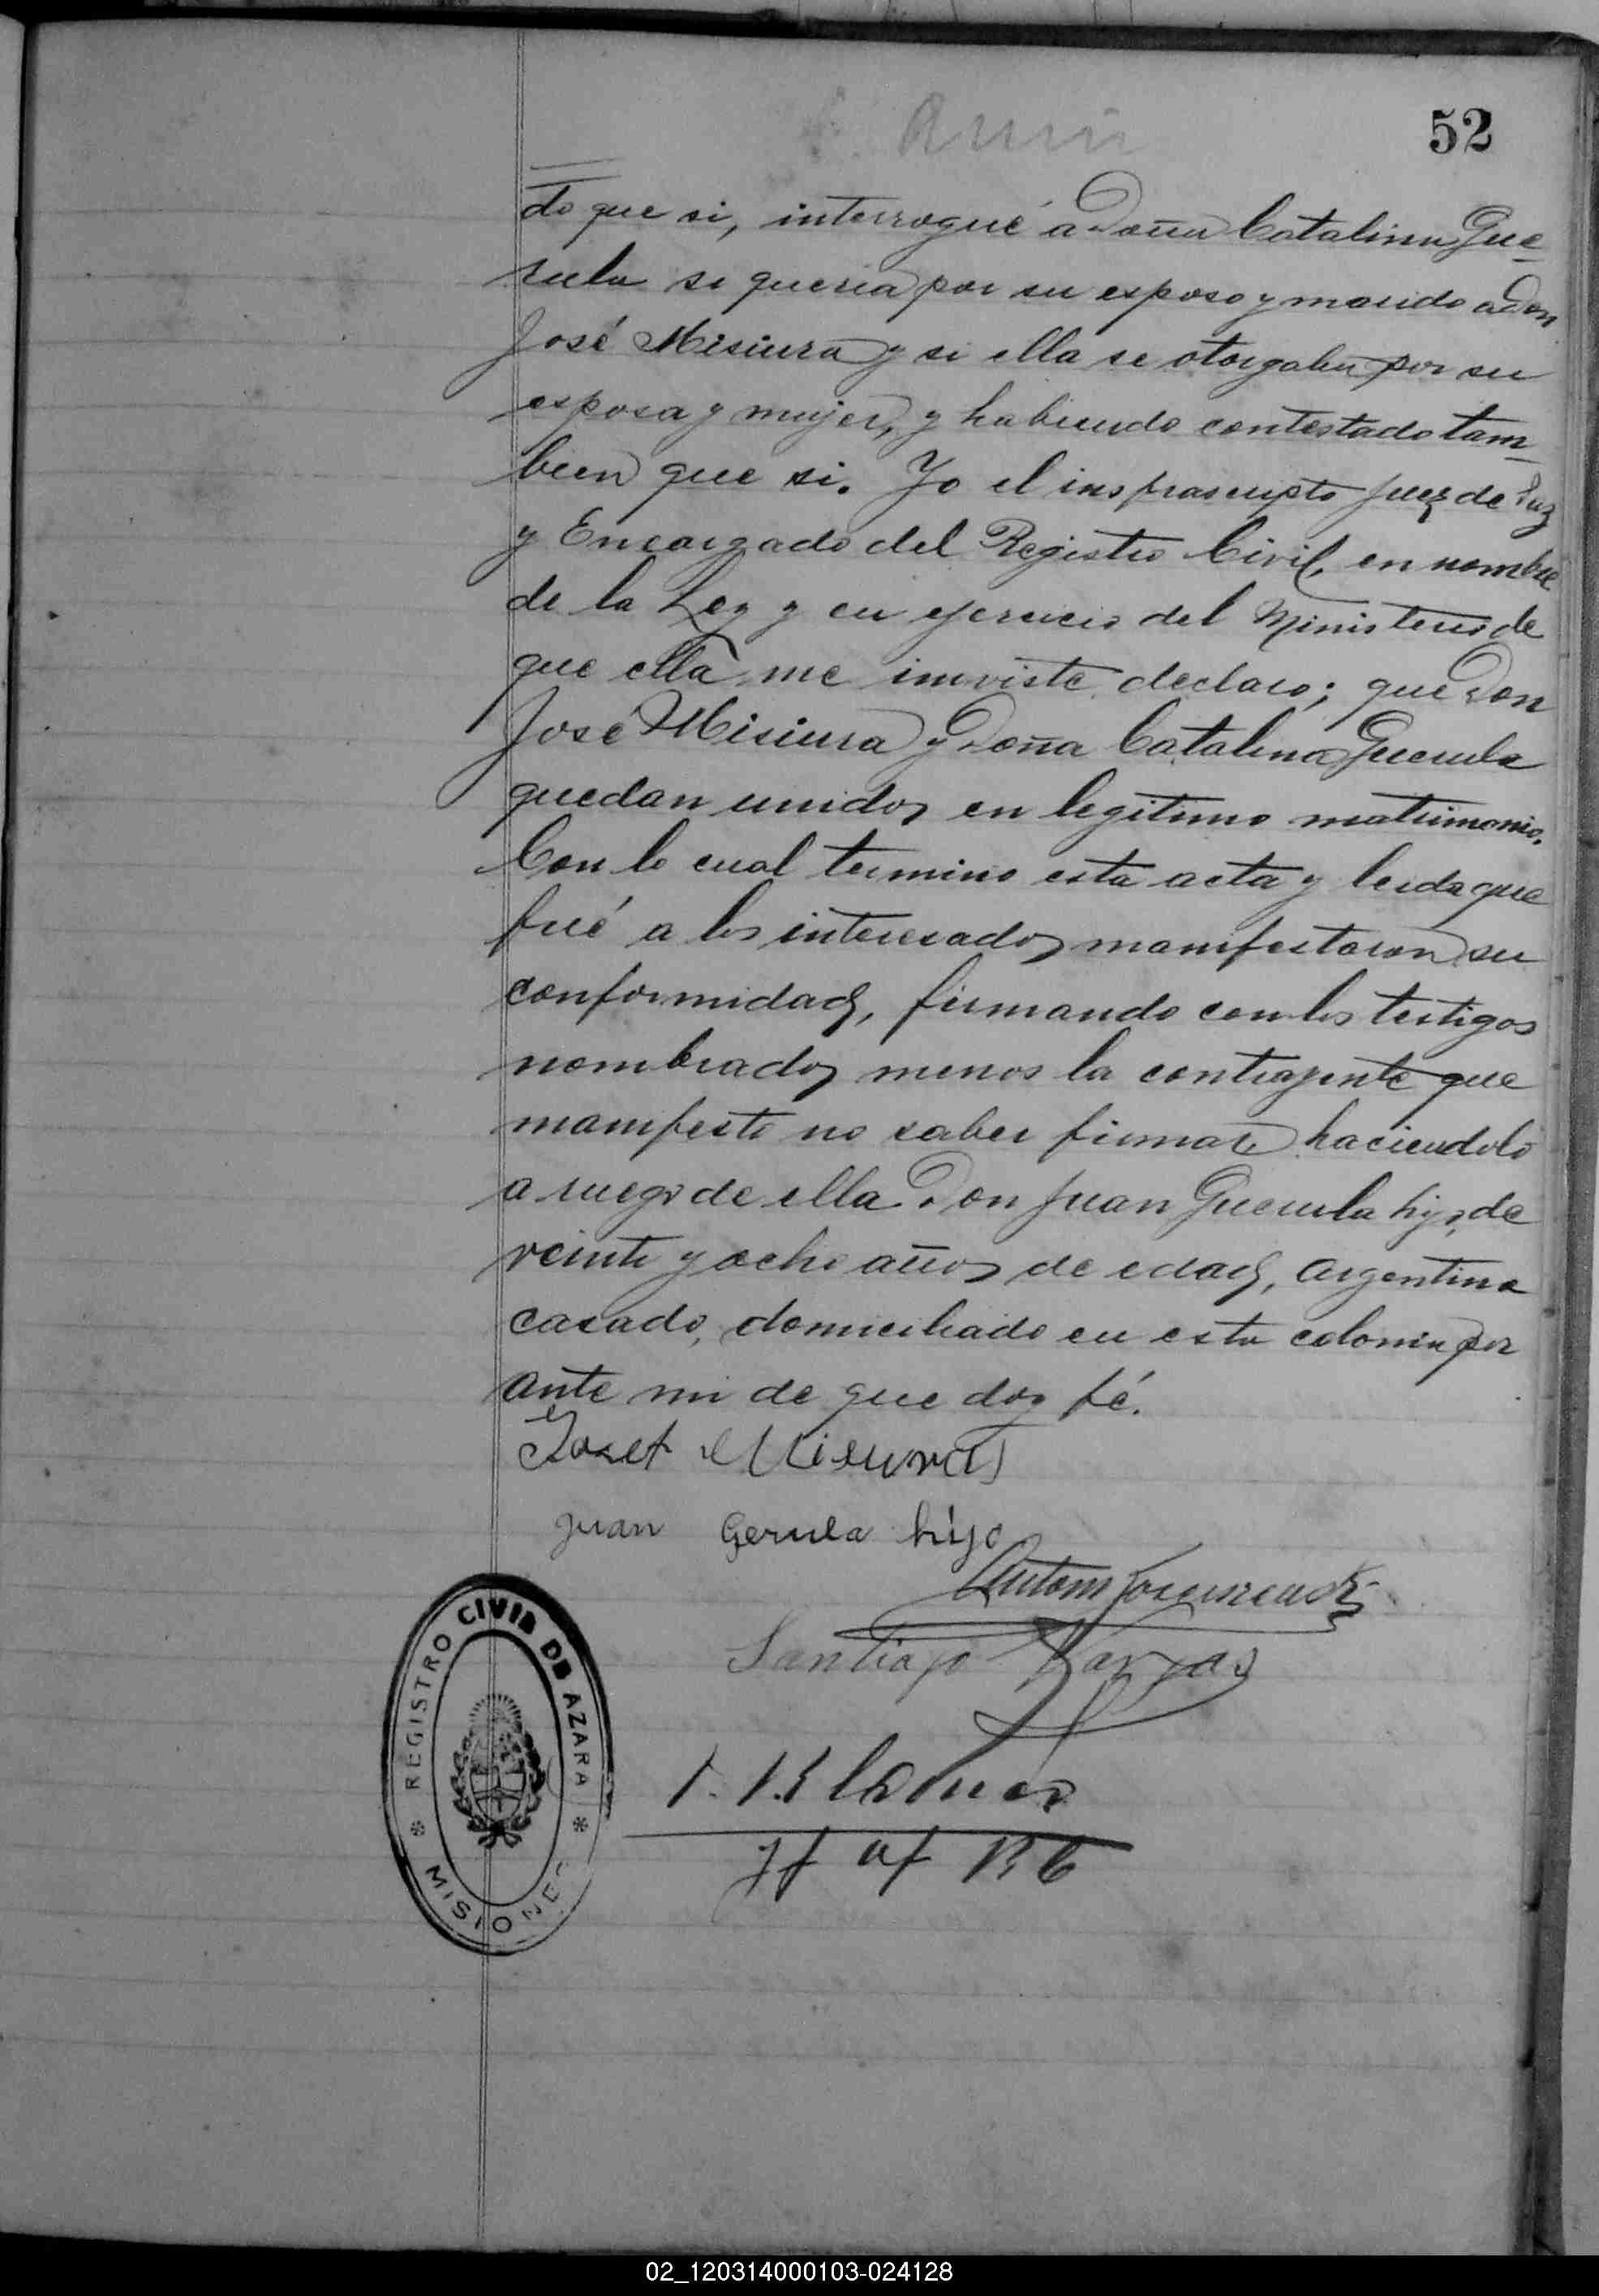 52
do que si, interrogué a Doña Catalina Gue-
rula si queria por su esposo y marido a Don
José Misiura y si ella se otorgaba por su
esposa y mujer, y habiendo contestado tam-
bien que si. Yo el infrascripto Juez de Paz
y Encargado del Registro Civil, en nombre
de la Ley y en ejercicio del Ministerio de
que ella me inviste declaro; que Don
José Misiura y Doña Catalina Guerula
quedan unidos en legitimo matrimonio.
Con lo cual termino esta acta y leida que
fué a los interesados manifestaron su
conformidad, firmando con los testigos
nombrados menos la contrayente que
manifestó no saber firmar haciendolo
a ruego de ella Don Juan Guerula hijo, de
veinte y ocho años de edad, Argentino
casado, domiciliado en esta colonia por
ante mi de que doy fé.
Jozef Misiura
Juan Gerula hijo
Antoni
Santiago Vargas
REGISTRO CIVIL DE AZARA
* MISIONES *
02_120314000103-024128